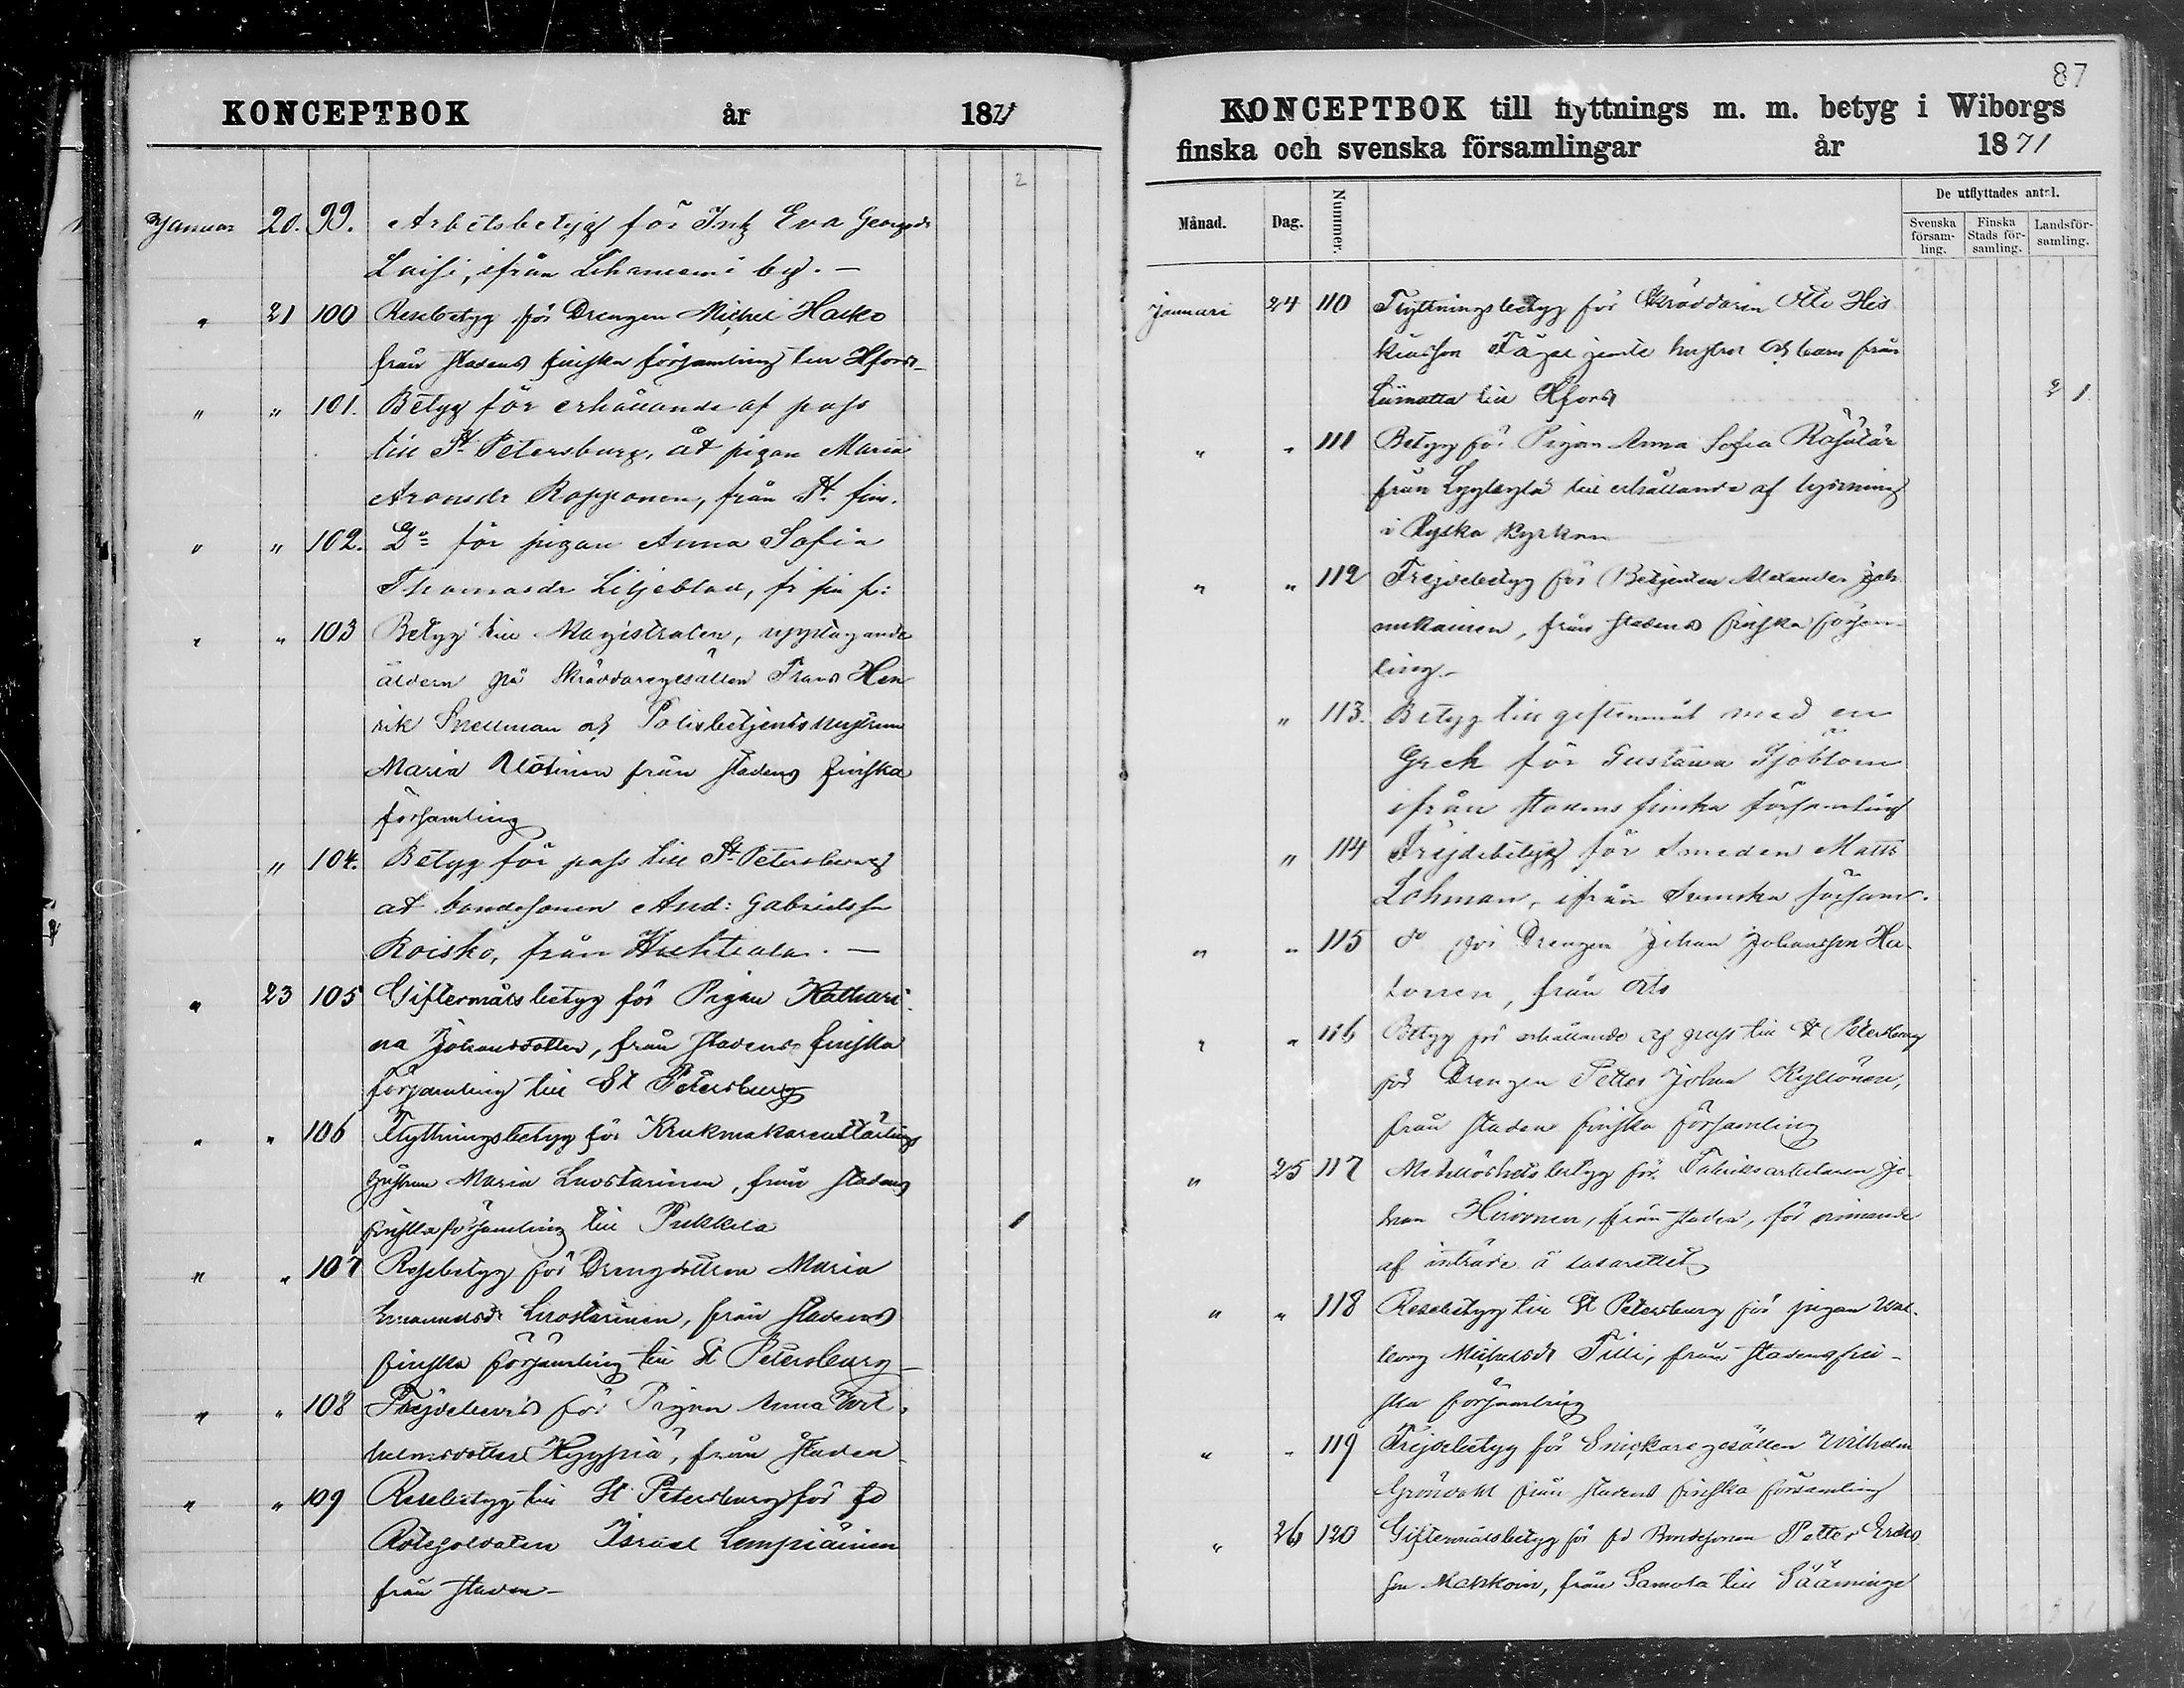 KONCEPTBOK år 1871
2
Januar 20. 99. Arbetsbetyg för Inh Eva Georgsdr
Laisi, ifrån Lihaniemi by. —
" 21 100 Resebetyg för Drengen Michel Hasko
från stadens finska församling till Hfors
" " 101. Betyg för erhållande af pass
till St Petersburg, åt pigan Maria
Aronsdr Ropponen, från St. fin.
" " 102. Do för pigan Anna Sofia
Thomasdr Liljeblad, fr fin fr:
" " 103 Betyg till Magistraten, upptagande
åldern på Skräddaregesällen Frans Hen
rik Snellman och Polisbetjents hustrun
Maria från stadens finska
församling
" 104. Betyg för pass till St. Petersburg
åt bondesonen And: Gabrielssn
Roisko, från Huhtiala. —
" 23 105 Giftermålsbetyg för Pigan Kathari
na Johansdotter, från stadens finska
församling till St Petersburg
" " 106 Flyttningsbetyg för Krukmakare
hustrun Maria Luostarinen, från stadens
finska församling till Pukkila 1
" " 107 Resebetyg för Drengdottren Maria
Emanuelsdr Luostarinen, från stadens
finska församling till St Petersburg
" " 108 Frejdebevis för Pigan Anna Wil
helmsdotter Hyypiä, från staden
" " 109 Resebetyg till St Petersburg för fd
Rotesoldaten Israel Lempiäinen
från staden —
87
KONCEPTBOK till flyttnings m. m. betyg i Wiborgs
finska och svenska församlingar år 1871
Månad. Dag. Nummer. De utflyttades antal.
Svenska församling. Finska Stads församling. Landsförsamling.
Januari 24 110 Flyttningsbetyg för Skräddarin Otto Hes
kiasson jemte hustru och barn från
Liimatta till Hfors 2 1
" " 111 Betyg för Pigan Anna Sofia
från Lyylylä till erhållande af lysning
i Ryska Kyrkan
" " 112 Frejdebetyg för Betjenten Alexander
nukainen, från stadens finska försam
ling —
" 113. Betyg till giftermål med en
Grek för Gustawa Sjöblom
ifrån stadens finska församling
" 114 Frejdebetyg för Smeden Matts
Lohman, ifrån Svenska försam.
" " 115 do för Drengen Johan Johansson Ha
tonen, från
" " 116 Betyg för erhållande af pass till St Petersburg
för Drengen Petter Johan Kyllönen,
från staden finska församling
" 25 117 Medellöshetsbetyg för Fabriksarbetaren Jo
han Hirvonen, från staden, för vinnande
af inträde å lasarettet
" " 118 Resebetyg till St Petersburg för pigan Wal
borg Michelsdr Tilli, från stadens fin-
ska församling
" " 119 Frejdebetyg för Snickaregesällen Wilhelm
Gröndahl från stadens finska församling
" 26 120 Giftermålsbetyg för fd Bondesonen Petter Erics
son från Samola till Sääminge